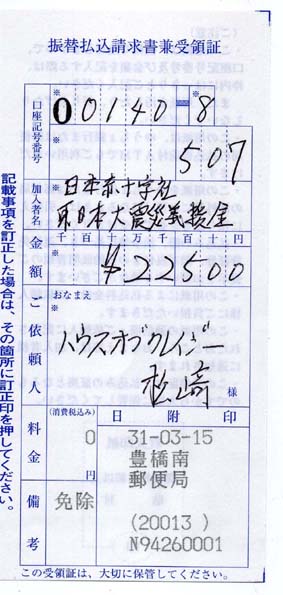 振替払込請求書兼受領証
口座記号番号
※
00140-8
※
507
加入者名
※
日本赤十字社
東日本大震災義援金
金額
千百十万千百十円
※
¥22500
ご依頼人
おなまえ
※
ハウスオブクレイジー
松崎 様
料金
(消費税込み)
0
円
備考
免除
日附印
31-03-15
豊橋南
郵便局
(20013 )
N94260001
記載事項を訂正した場合は、その箇所に訂正印を押してください。
この受領証は、大切に保管してください。